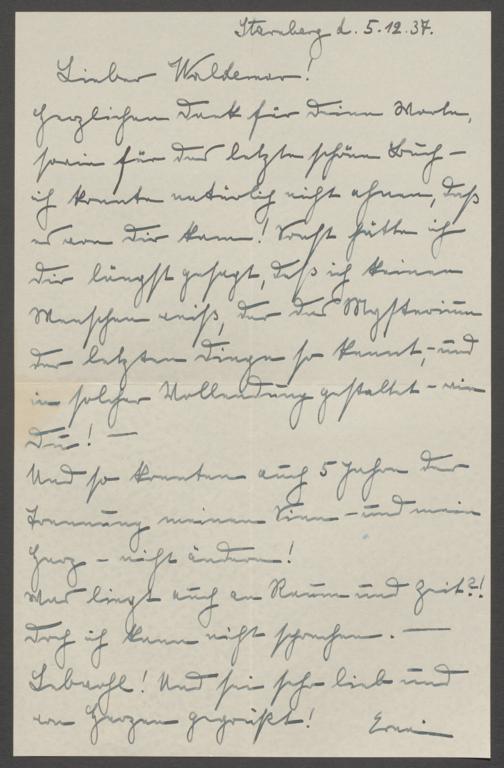 Starnberg d. 5.12.37.
Lieber Waldemar!
Herzlichen Dank für Deine Worte,
sowie für das letzte schöne Buch –
ich konnte natürlich nicht ahnen, daß
es von Dir kam! Sonst hätte ich
Dir längst gesagt, daß ich keinen
Menschen weiß, der das Mysterium
der letzten Dinge so kennt, – und
in solcher Vollendung gestaltet – wie
Du! —
Und so konnten auch 5 Jahre der
Trennung meinen Sinn – und mein
Herz – nicht ändern!
Was liegt auch an Raum und Zeit?!
Doch ich kann nicht sprechen. —
Lebwohl! Und sei sehr lieb und
von Herzen gegrüßt!